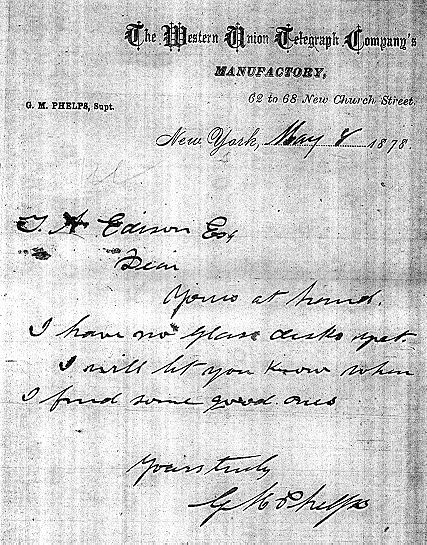 The Western Union Telegraph Company's
MANUFACTORY,
62 to 68 New Church Street.
G. M. PHELPS, Supt.
New York, May 8 1878
T A Edison Esq
Dear
Yours at hand.
I have no glass disks yet.
I will let you know when
I find some good ones
Yours truly
G M Phelps